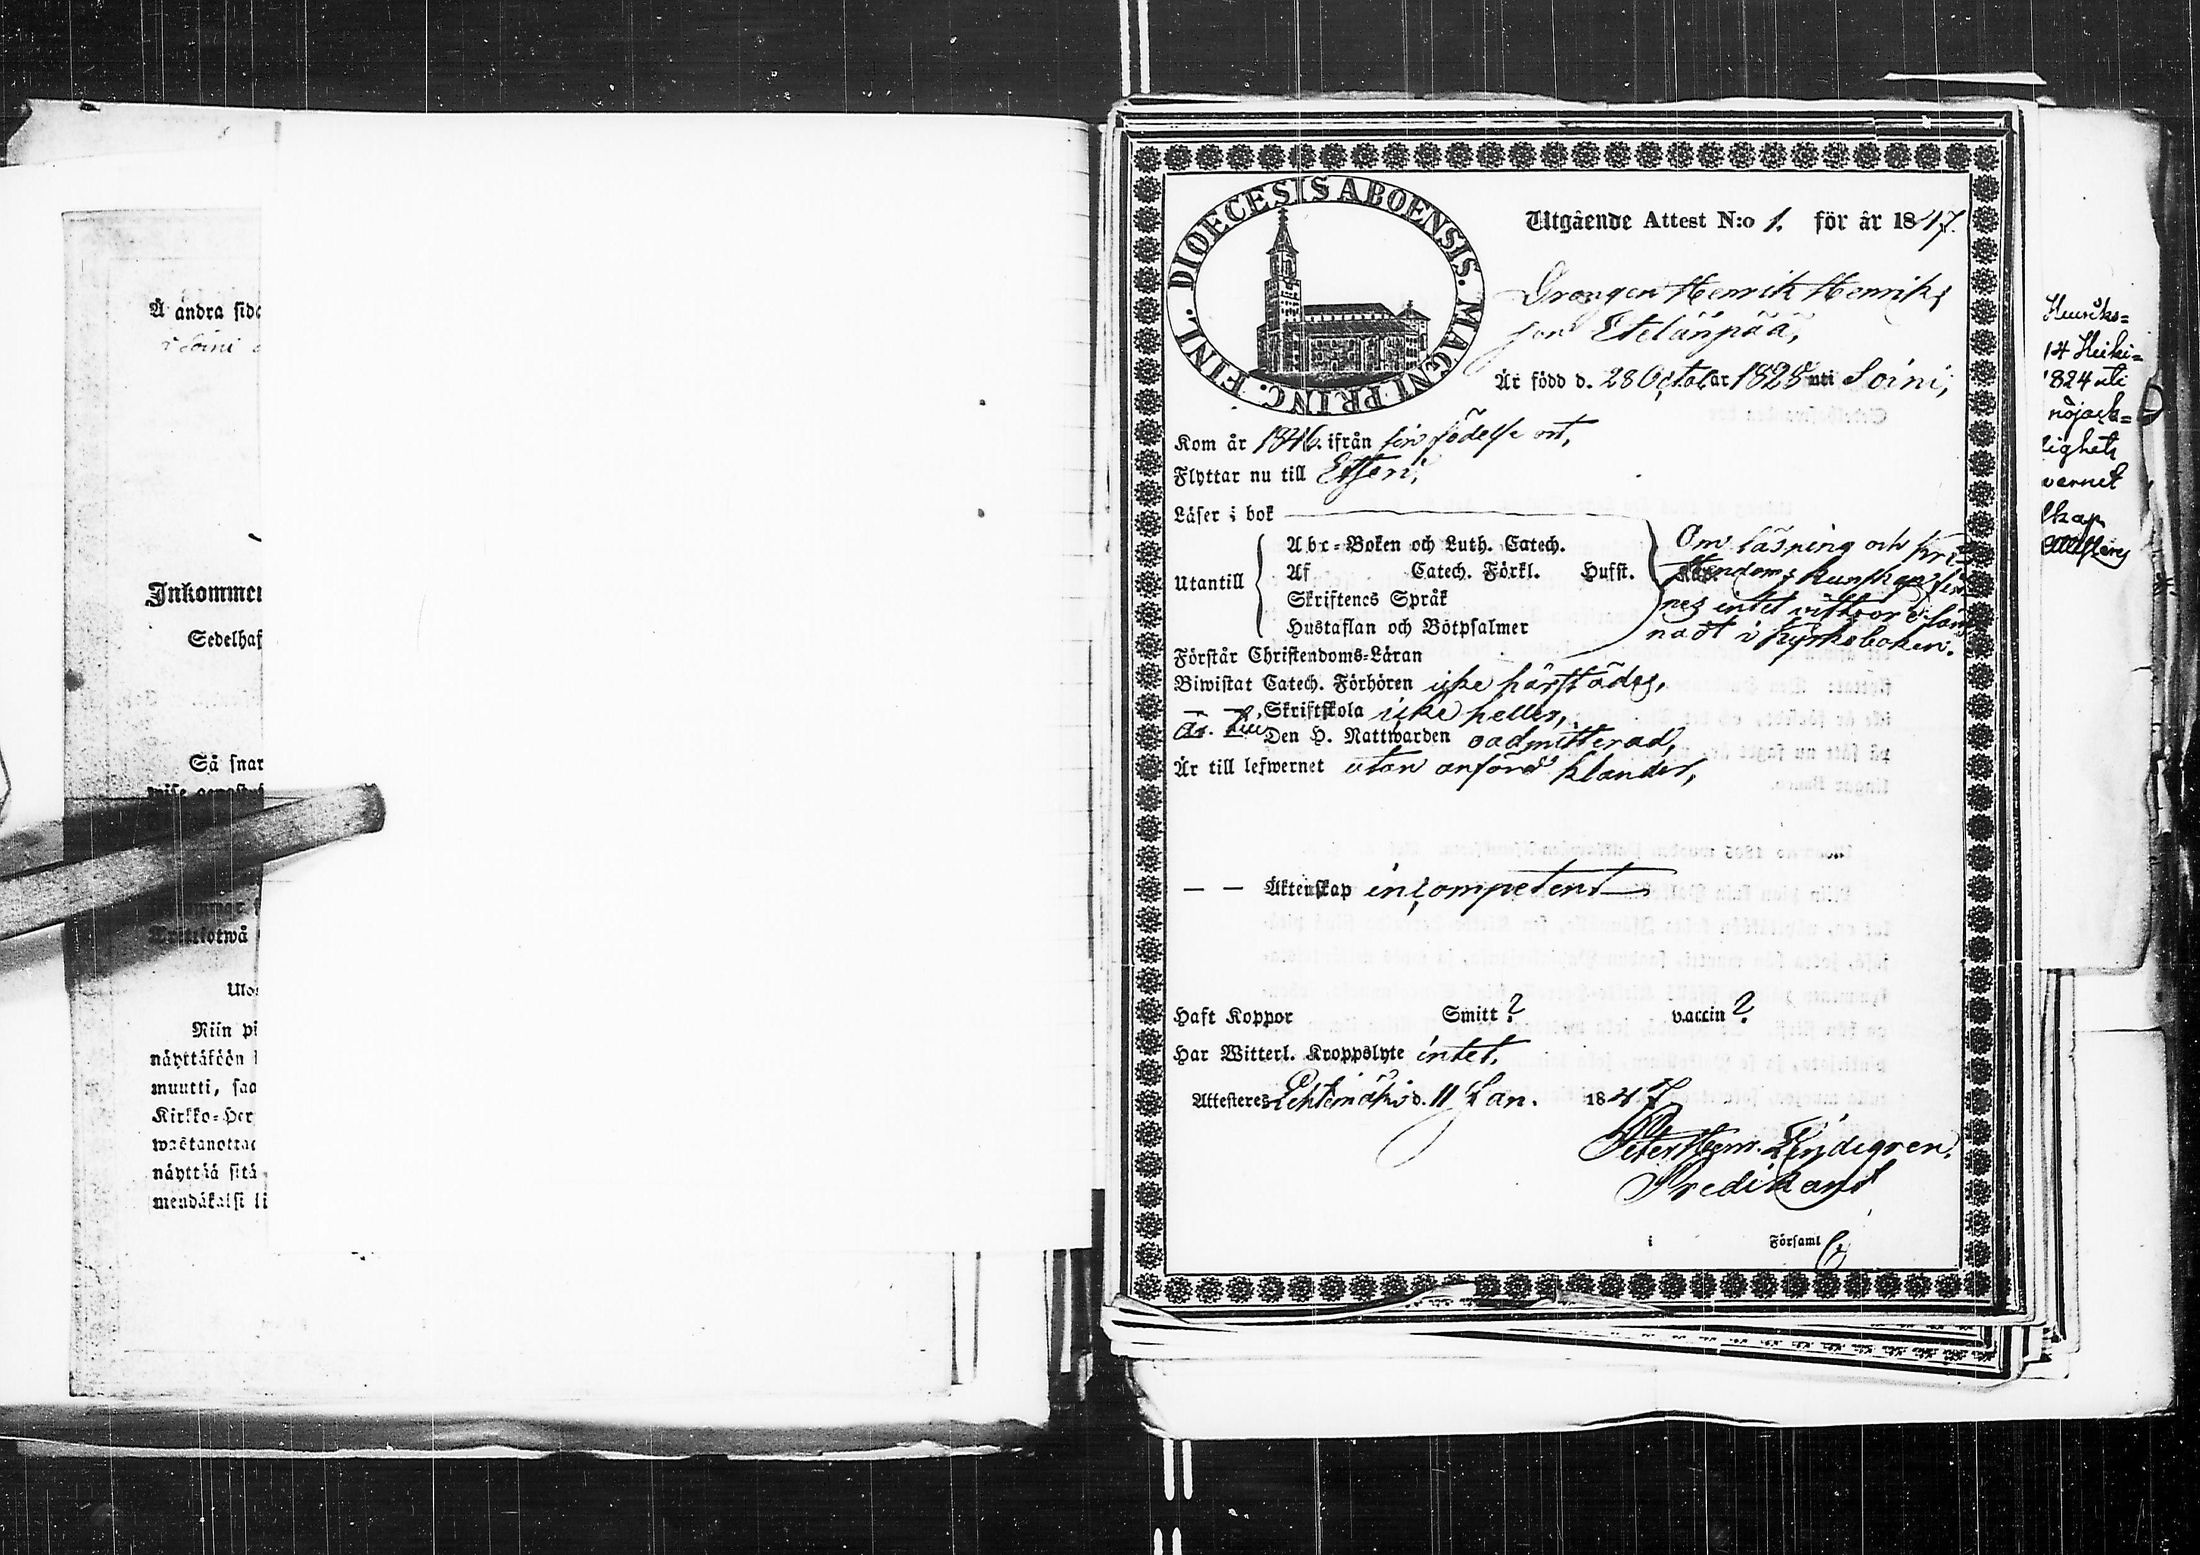 Å andra sid
i Soini
Inkommen
Sedelhaf
Så snar
Niin pi
näyttäköön
muutti, saa
Kirkko-Her
wastanottaa
näyttää sitä
mendäkalsi li
DIOECESIS ABOENSIS. MAGNI PRINC. FINL.
Utgående Attest N:o 1. för år 1847.
Drengen Henrik Henriks
son Etelänpää,
Är född d. 28 Octob. år 1828 uti Soini,
Kom år 1846. ifrån sin födelse ort,
Flyttar nu till Etseri,
Läser i bok
Utantill
Abc-Boken och Luth. Catech.
Af Catech. Förkl. Husst. Kap.
Skriftenes Språk
Hustaflan och Bötpsalmer
Om läsning och kri
stendoms kunskap fin
nes intet vittsord läm
nadt i Kyrkoboken.
Förstår Christendoms-Läran
Biwistat Catech. Förhören icke härstädes,
— — Skriftskola icke heller,
Är till Den H. Nattwarden oadmitterad,
Är till lefwernet utan anförd klander,
— — Äktenskap incompetent
Haft Koppor Smitt ? vaccin ?
Har Witterl. Kroppslyte intet.
Attesteres Lehtimäki d. 11 Jan. 1847
Peter Henr. Lindegren.
Predikant
i Församl
Henriks-
14 Heiki-
1824 uti
nöjack-
lighets
vernet
skap